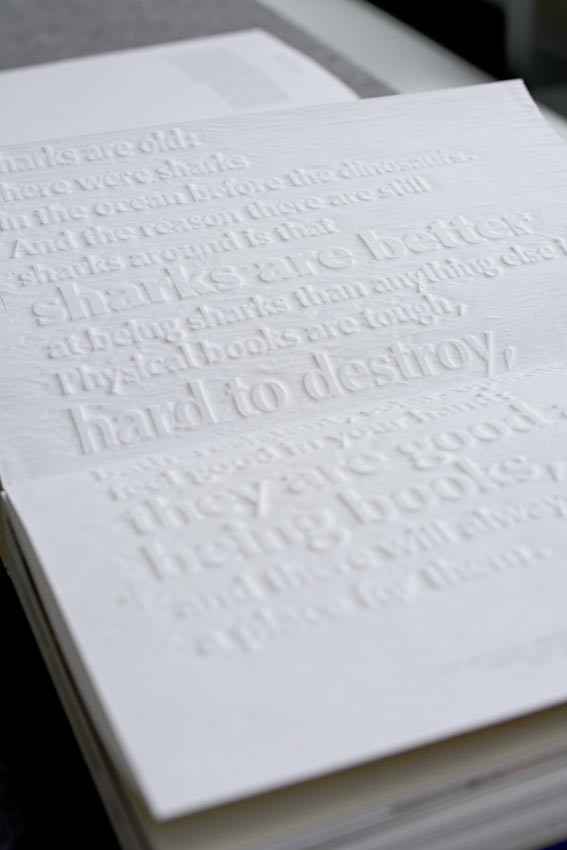 sharks are old:
there were sharks
in the ocean before the dinosaurs.
And the reason there are still
sharks around is that
sharks are better
at being sharks than anything else
Physical books are tough,
hard to destroy,
feel good in your hand:
they are good
being books,
and there will always
a place for them.